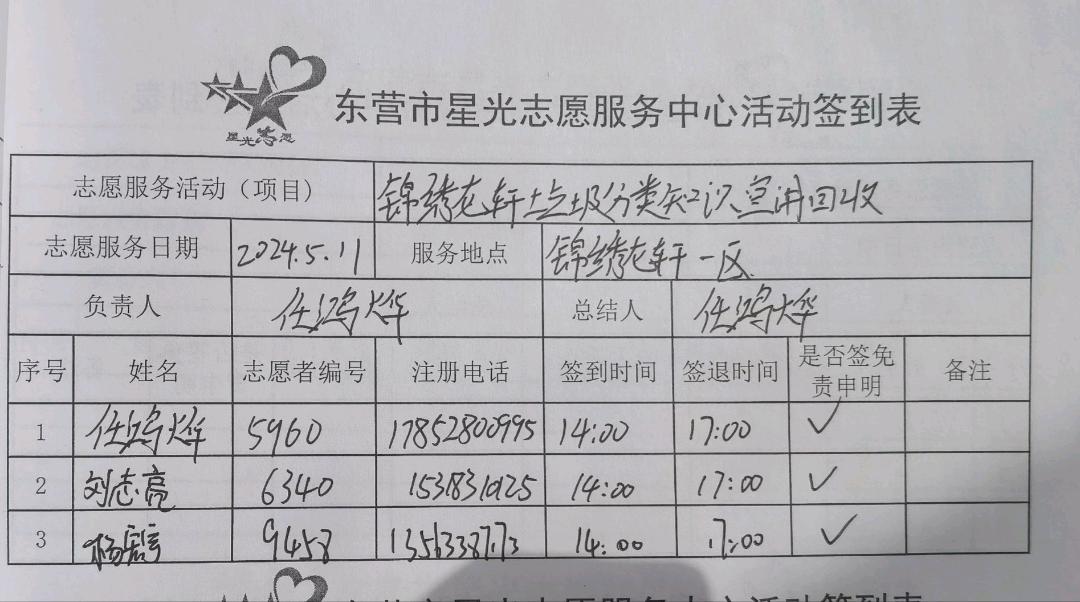 星光志愿
东营市星光志愿服务中心活动签到表
志愿服务活动（项目） 锦绣龙轩垃圾分类知识宣讲回收
志愿服务日期 2024.5.11 服务地点 锦绣龙轩一区
负责人 任鸿烨 总结人 任鸿烨
序号 姓名 志愿者编号 注册电话 签到时间 签退时间 是否签免责申明 备注
1 任鸿烨 5960 17852800995 14:00 17:00 ✓
2 刘志亮 6340 15318310125 14:00 17:00 ✓
3 杨 9458 14:00 17:00 ✓
东营市星光志愿服务中心活动签到表